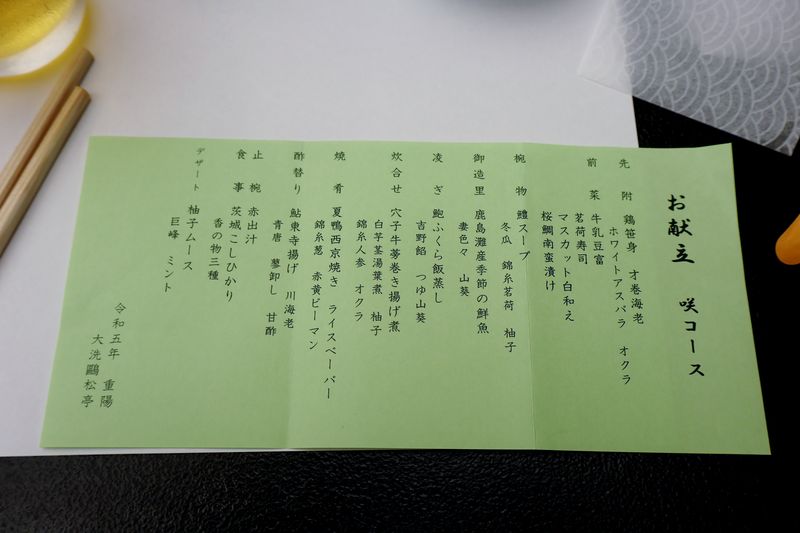 お献立　咲コース
先附　鶏笹身　才巻海老
ホワイトアスパラ　オクラ
前菜　牛乳豆富
茗荷寿司
マスカット白和え
桜鯛南蛮漬け
椀物　鱧スープ
冬瓜　錦糸茗荷　柚子
御造里　鹿島灘産季節の鮮魚
妻色々　山葵
凌ぎ　鮑ふくら飯蒸し
吉野餡　つゆ山葵
炊合せ　穴子牛蒡巻き揚げ煮
白芋茎湯葉煮　柚子
錦糸人参　オクラ
焼肴　夏鴨西京焼き　ライスペーパー
錦糸葱　赤黄ピーマン
酢替り　鮎東寺揚げ　川海老
青唐　蓼卸し　甘酢
止椀　赤出汁
食事　茨城こしひかり
香の物三種
デザート　柚子ムース
巨峰　ミント
令和五年　重陽
大洗鷗松亭